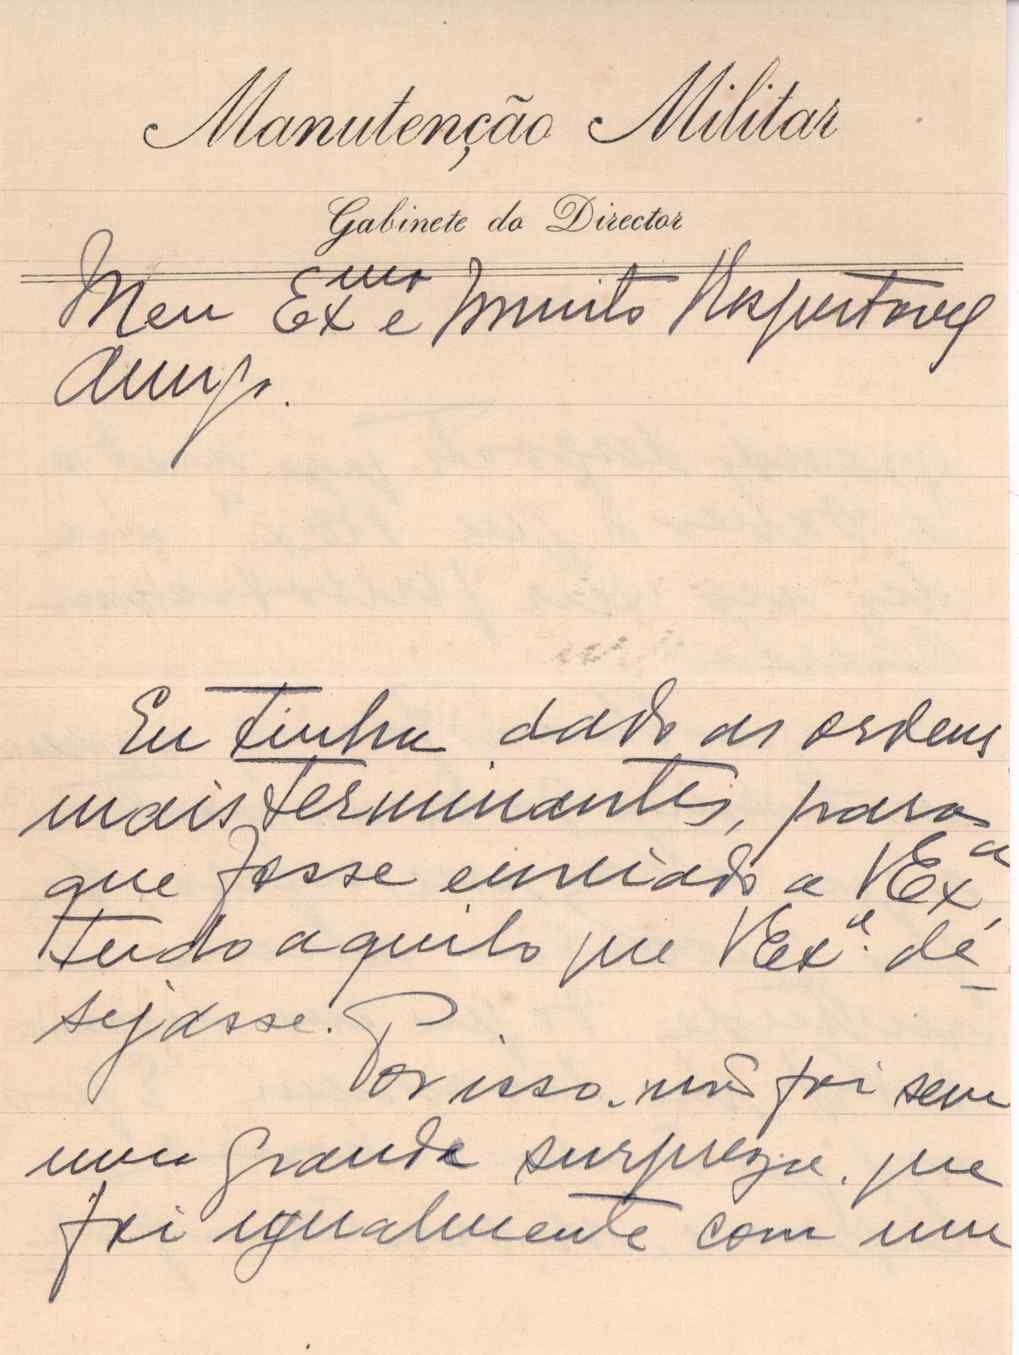 Manutenção Militar
Gabinete do Director
Meu Exmo e Muito Respeitavel
Amigo.
Eu tinha dado as ordens
mais terminantes, para
que fosse enviado a VExª,
tudo aquilo que VExª. de-
sejasse.
Por isso. não foi sem
uma grande surpreza. que
foi igualmente com um